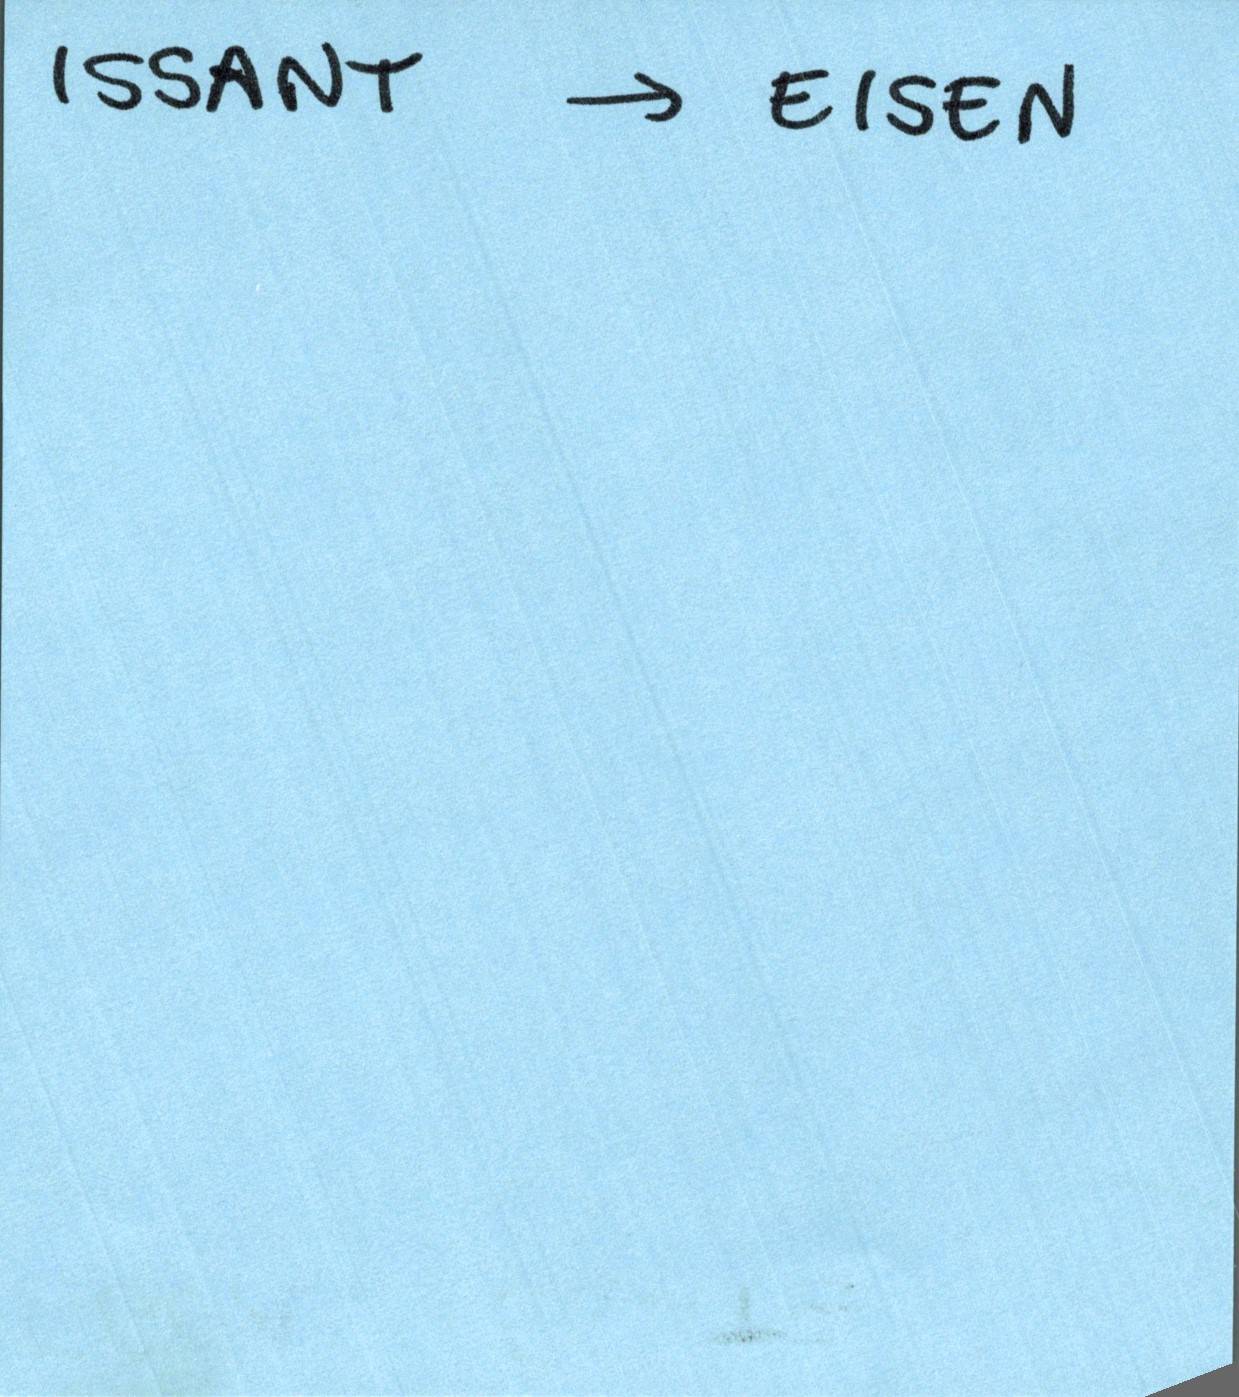 ISSANT → EISEN